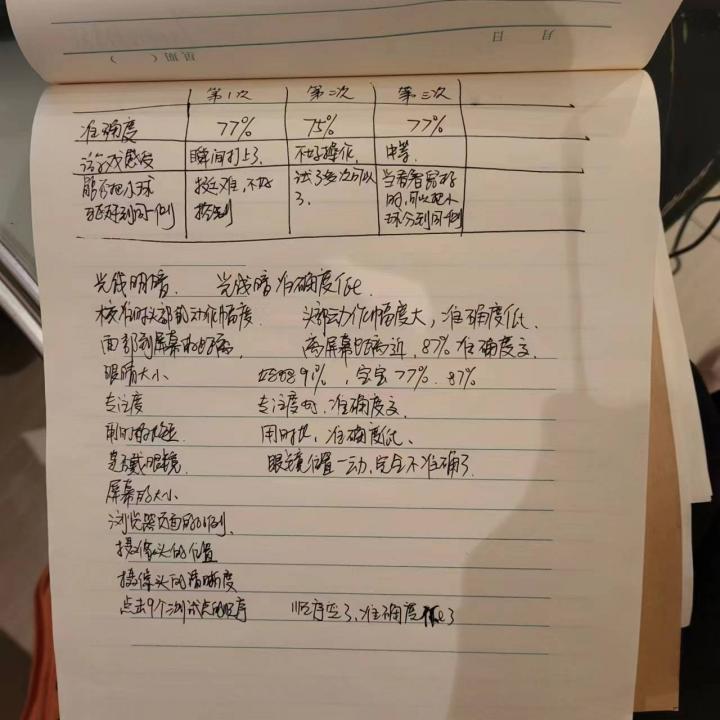 月 日
星期( )
第1次 第二次 第三次
准确度 77% 75% 77%
游戏感受 瞬间打上了. 不好操作. 中等.
能否把小球 挺难,不好 试了多次可以 当看着目标
到同一侧 了. 时,可以把小
球分到同一侧
光线明暗. 光线暗准确度低.
校准时头部的动作幅度. 头部动作幅度大,准确度低、
面部到屏幕的距离. 离屏幕距离近,87%准确度高.
眼睛大小 91%,宝宝77%.87%
专注度 专注度高,准确度高.
用时 用时长,准确度低、
是否戴眼镜. 眼镜位置一动,完全不准确了.
屏幕的大小.
浏览器页面的比例.
摄像头的位置
摄像头的清晰度
点击9个测试点的顺序 顺序变了,准确度低了